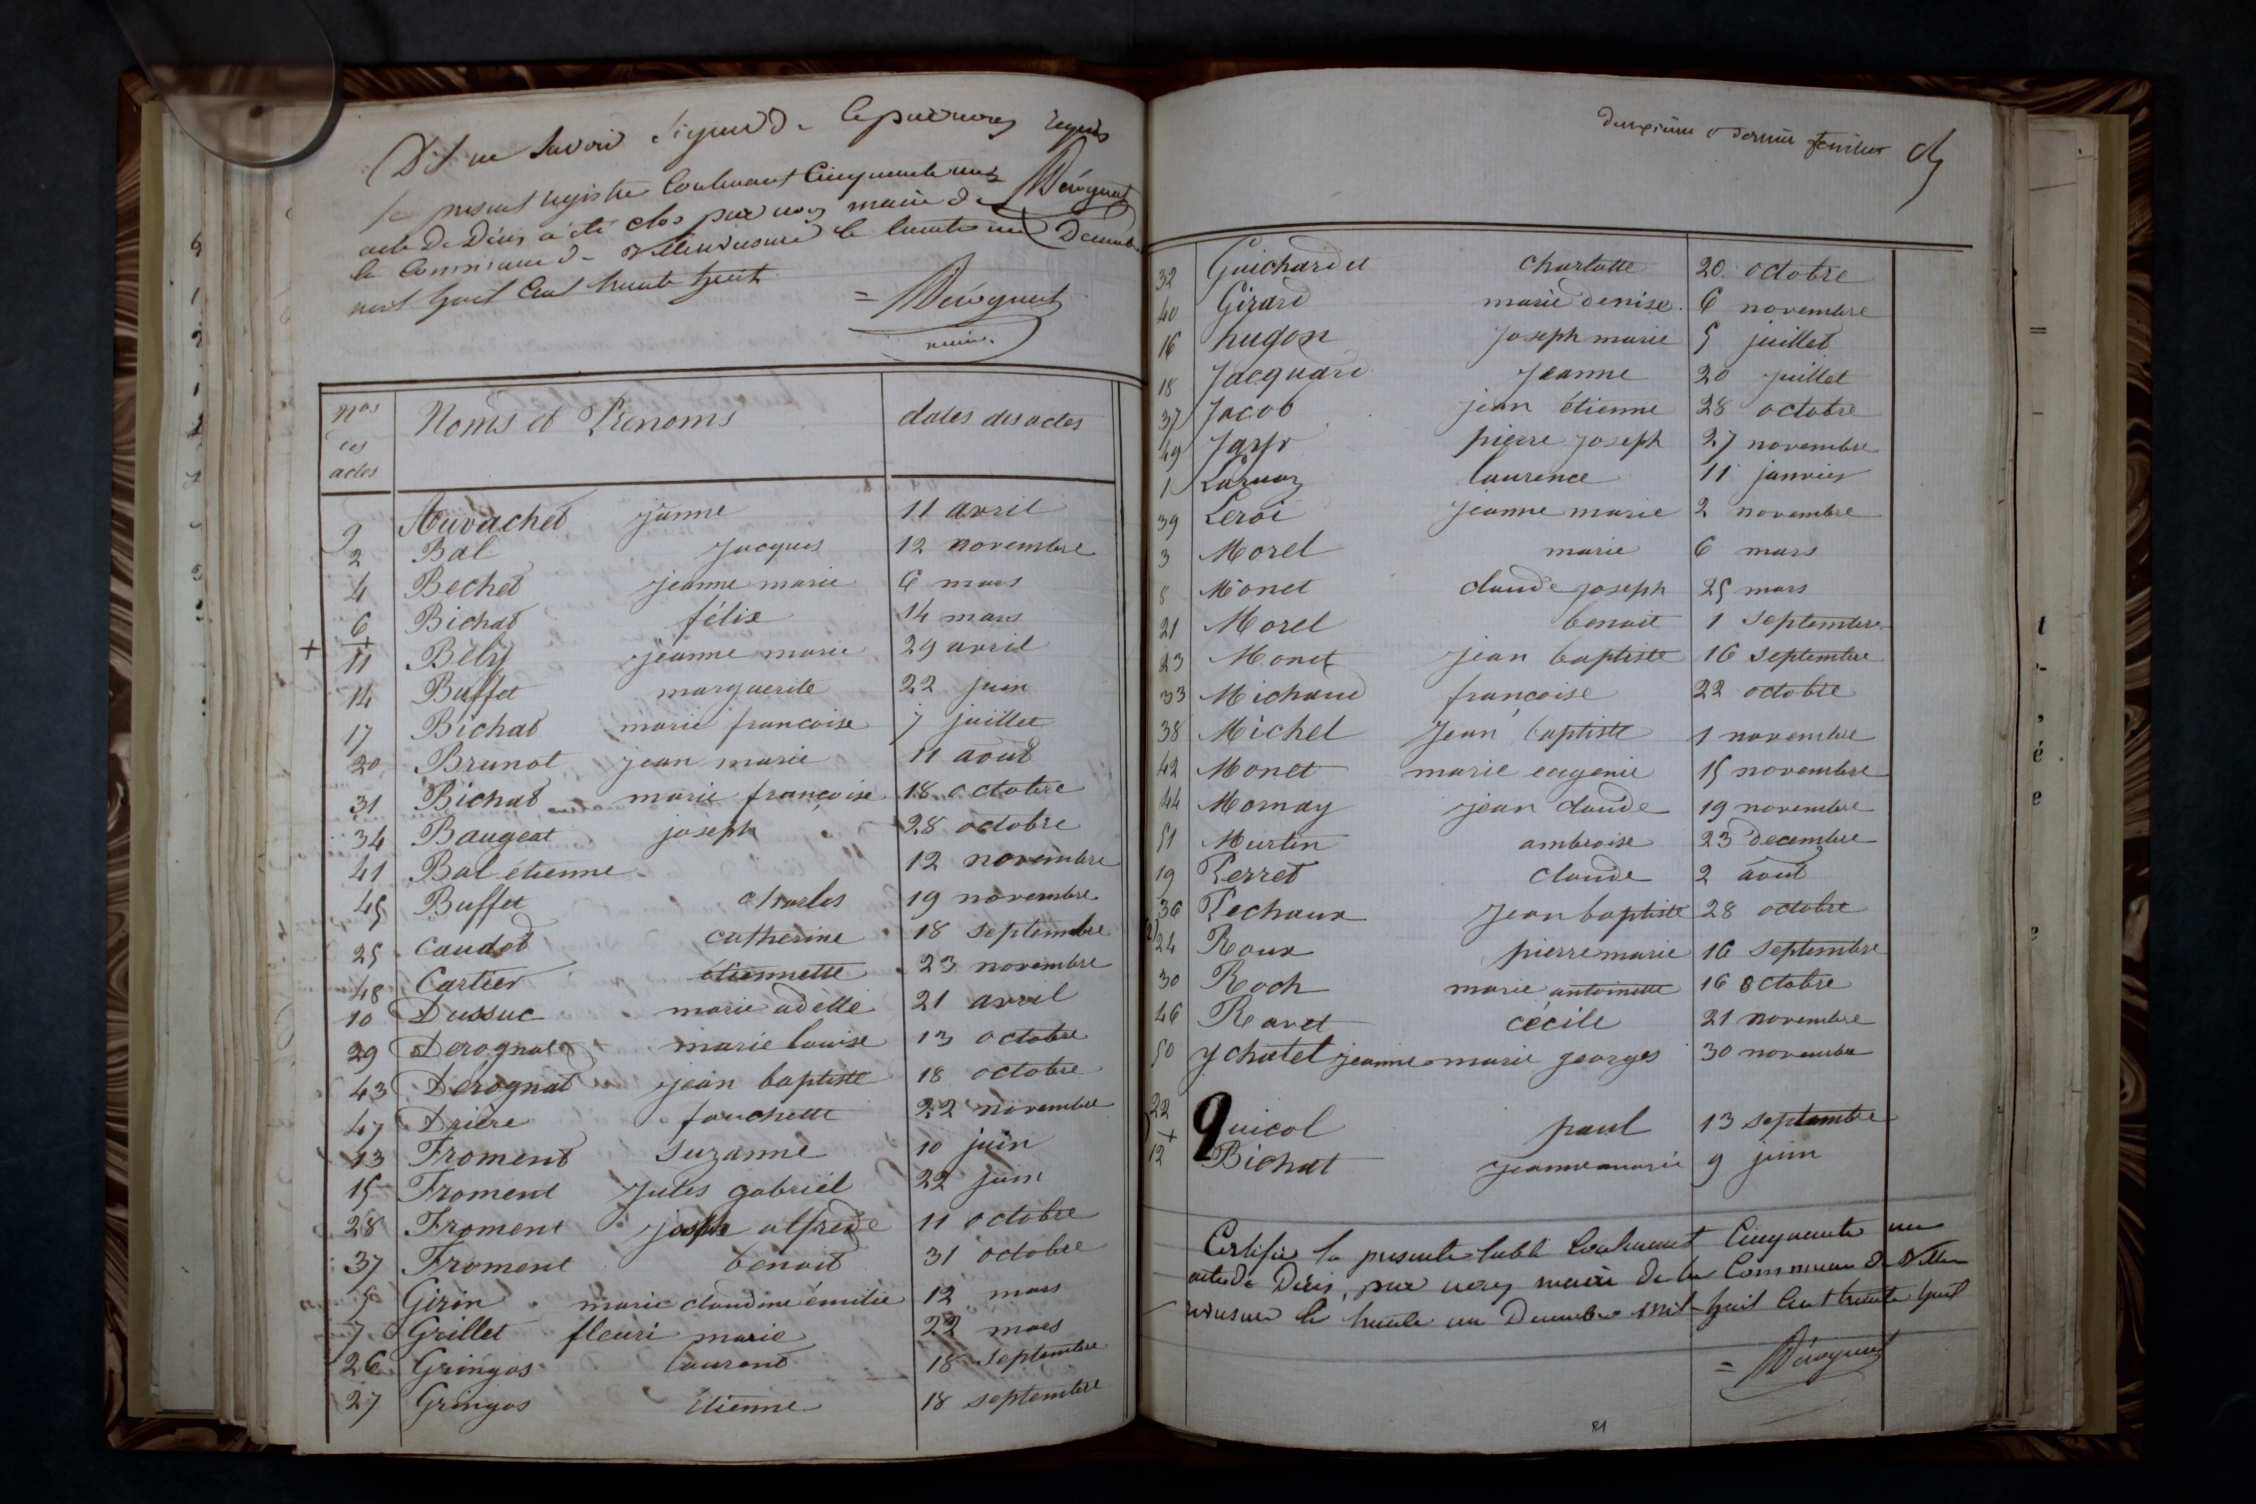 Dit ne savoir signer de ce par nous requis
le present registre contenant cinquante une
acte de Décès a été clos par nous maire de
la commune de Villereversure le trente un Décembre
mil huit cent trente huit
= Dérognat
maire
nos des actes
Noms et Prenoms
dates des actes
9 Auvachet jeanne 11 avril
2 Bal jacques 12 novembre
4 Bechet jeanne marie 6 mars
6 Bichat félix 14 mars
+ 11 Bely jeanne marie 29 avril
14 Buffet marguerite 22 juin
17 Bichat marie francoise 7 juillet
20 Brunot jean marie 11 août
31 Bichat marie françoise 18 octobre
34 Baugeat joseph 28 octobre
41 Bal étienne 12 novembre
45 Buffet charles 19 novembre
25 Caudet catherine 18 septembre
48 Cartier étiennette 23 novembre
10 Dussuc marie adelle 21 avril
29 Derognat marie louise 13 octobre
43 Derognat jean baptiste 18 octobre
47 Drière fanchette 22 novembre
13 Froment Suzanne 10 juin
15 Froment Jules gabriel 22 juin
28 Froment joseph alfrede 11 octobre
37 Froment benoit 31 octobre
5 Girin marie claudine émilie 12 mars
7 Grillet fleuri marie 22 mars
26 Gringos laurent 18 septembre
27 Gringos étienne 18 septembre
deuxième et dernier feuillet
32 Guichardet charlotte 20 octobre
40 Girard marie denise 6 novembre
16 hugon Joseph marie 5 juillet
18 Jacquard Jeanne 20 juillet
37 Jacob jean étienne 28 octobre
49 Jayr pierre joseph 27 novembre
1 laurence 11 janvier
39 Leroi jeanne marie 2 novembre
3 Morel marie 6 mars
8 Monet claude joseph 25 mars
21 Morel benoit 1 septembre
23 Monet jean baptiste 16 septembre
33 Michaud francoise 22 octobre
38 Michel Jean baptiste 1 novembre
42 Monet marie eugenie 15 novembre
44 Mornay jean claude 19 novembre
51 Martin ambroise 23 decembre
19 Perret claude 2 août
36 Pechoux Jean baptiste 28 octobre
24 Roux pierre marie 16 septembre
30 Roch marie antoinette 16 octobre
46 Ravet cécile 21 novembre
50 ychatel jeanne marie georges 30 novembre
22 quicol paul 13 septembre
+ 12 Bichat jeanne marie 9 juin
Certifié la presente table contenant cinquante une
acte de Décès, par nous maire de la Commune de Ville
reversure le trente un Decembre mil huit cent trente huit
= Dérognat
81